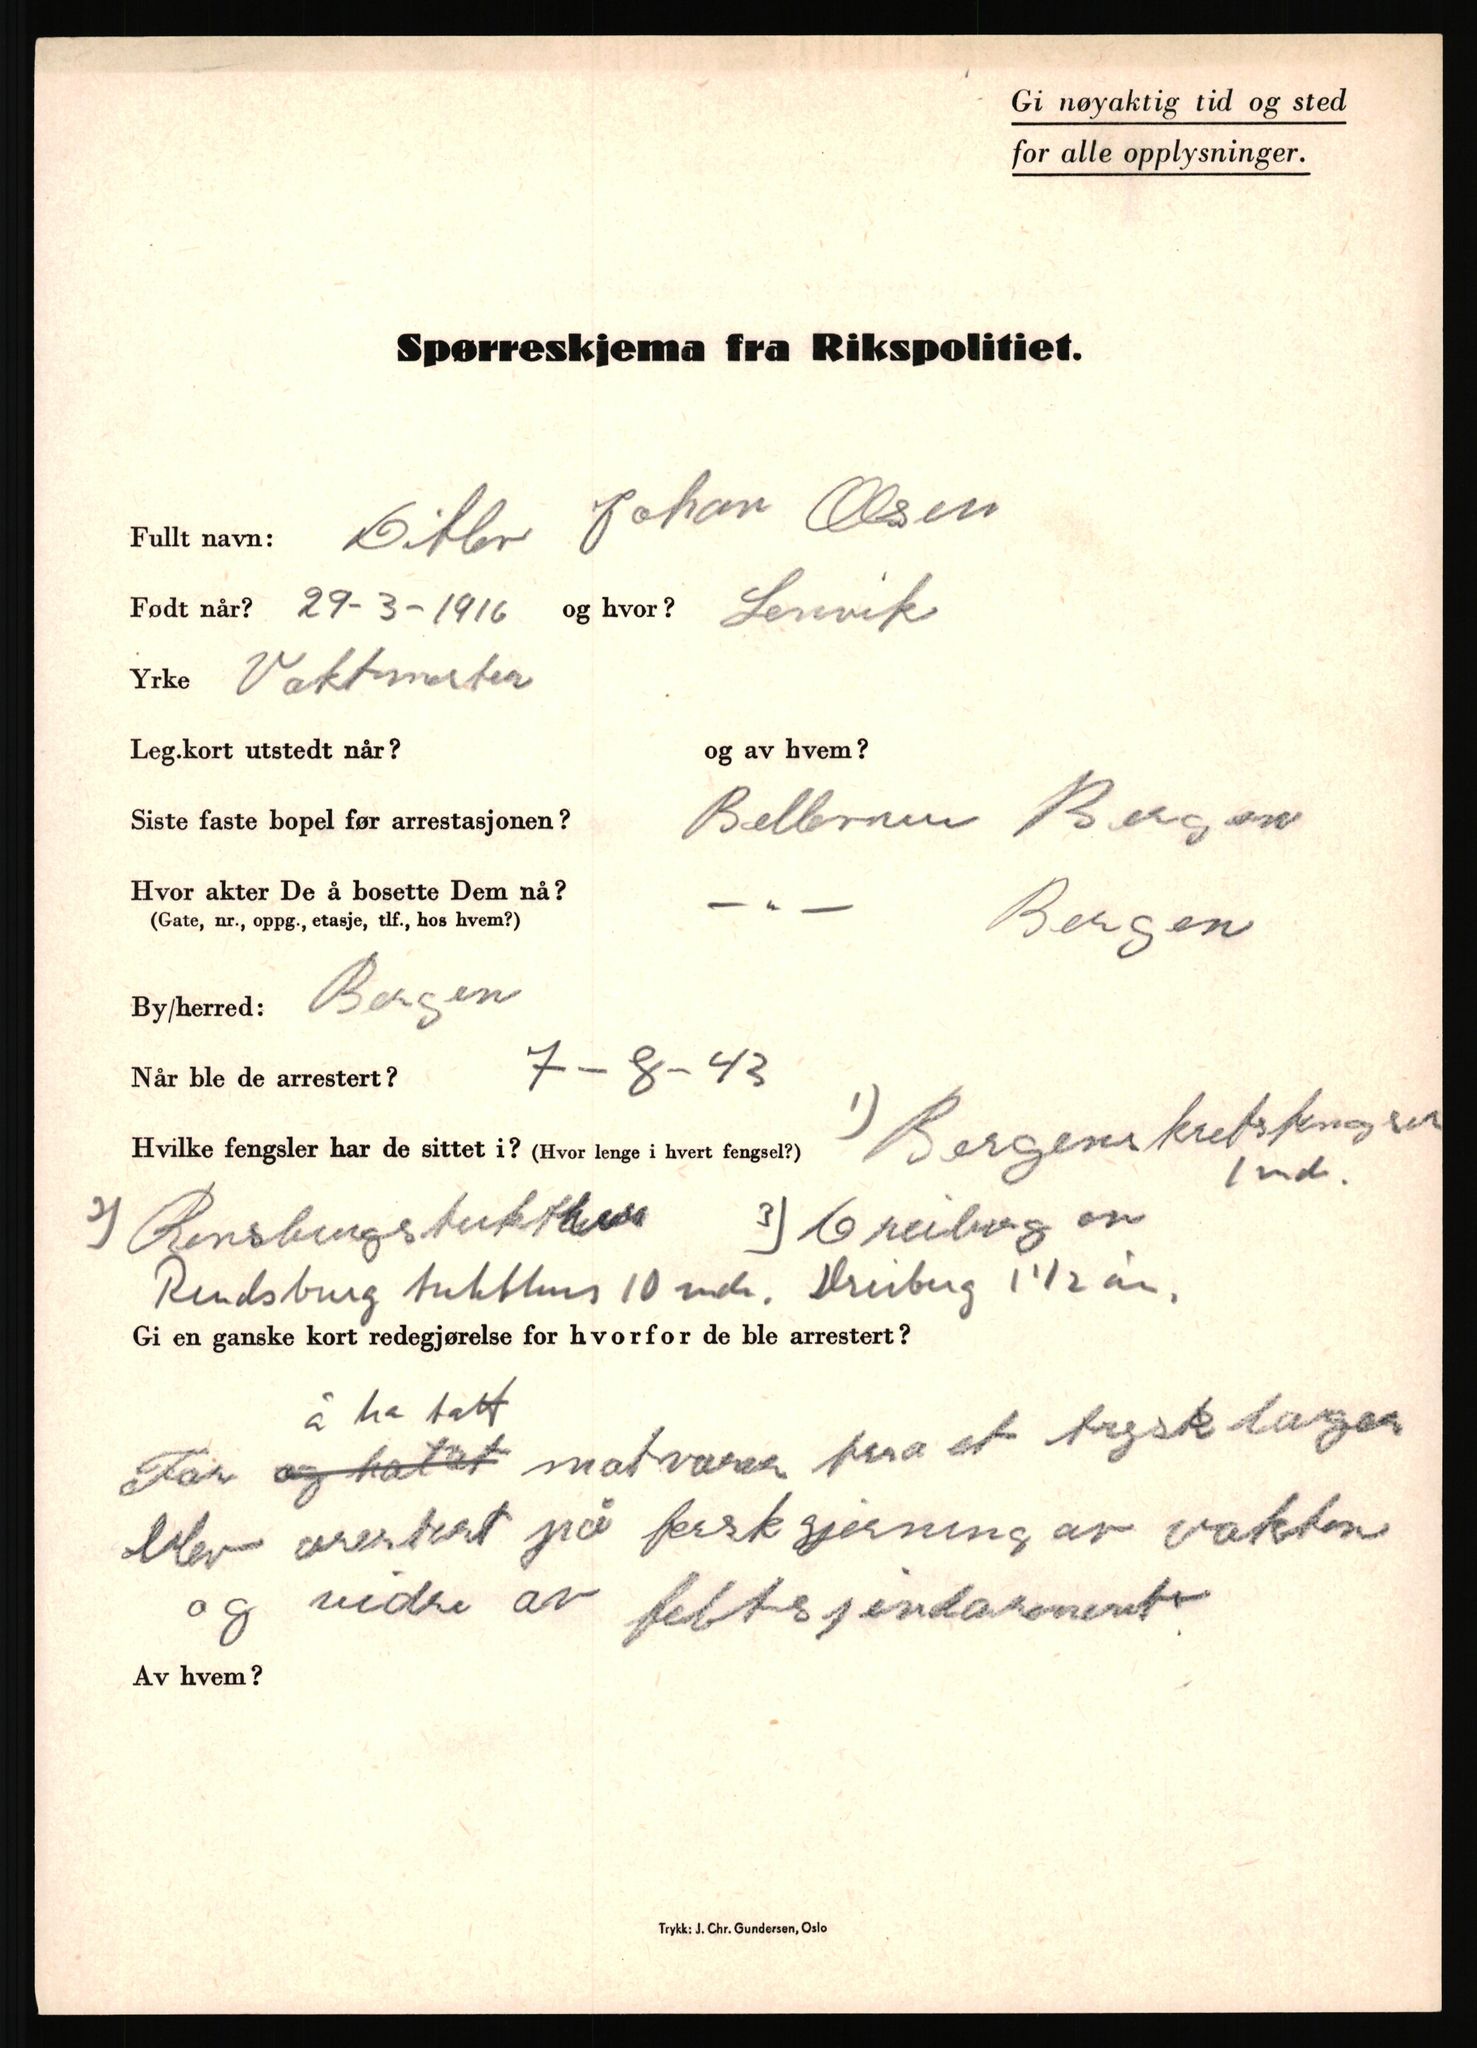 Gi nøyaktig tid og sted
for alle opplysninger.
Spørreskjema fra Rikspolitiet.
Fullt navn: Ditlev Johan Olsen
Født når? 29-3-1916 og hvor? Lenvik
Yrke Vaktmester
Leg.kort utstedt når? og av hvem?
Siste faste bopel før arrestasjonen? Bergen
Hvor akter De å bosette Dem nå? — " — Bergen
(Gate, nr., oppg., etasje, tlf., hos hvem?)
By/herred: Bergen
Når ble de arrestert? 7-8-43
Hvilke fengsler har de sittet i? (Hvor lenge i hvert fengsel?) 1) Bergenskretsfengsel
1 md.
2) Rensburgstukthus 3) Dreiberg en
Rendsburg tukthus 10 mdr. Dreiberg 1 1/2 år.
Gi en ganske kort redegjørelse for hvorfor de ble arrestert?
å ha tatt
For og hatat matvarer fra et tysk lager
blev arestert på fersk gjerning av vakten
og vidre av feltsjendarmeri
Av hvem?
Trykk: J. Chr. Gundersen, Oslo